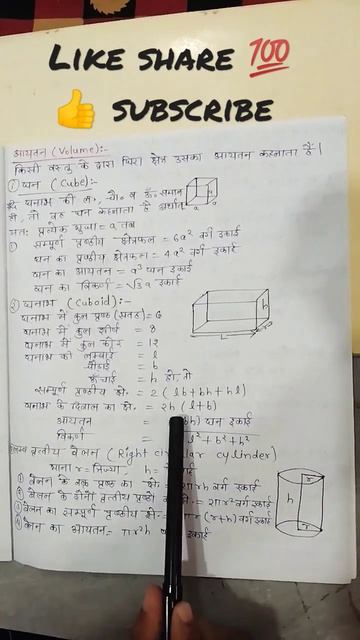 LIKE SHARE 💯
👍 SUBSCRIBE
आयतन (Volume):-
किसी वस्तु के द्वारा घिरा क्षेत्र उसका आयतन कहलाता है।
① घन (Cube):-
यदि घनाभ की ल०, चौ० व ऊँ० समान
हो, तो वह घन कहलाता है अर्थात्
अतः प्रत्येक भुजा = a तब
① सम्पूर्ण पृष्ठीय क्षेत्रफल = 6a² वर्ग इकाई
घन का पृष्ठीय क्षेत्रफल = 4a² वर्ग इकाई
घन का आयतन = a³ घन इकाई
घन का विकर्ण = √3 a इकाई
② घनाभ (Cuboid):-
घनाभ में कुल पृष्ठ (सतह) = 6
घनाभ में कुल शीर्ष = 8
घनाभ में कुल कोर = 12
घनाभ की लम्बाई = l
चौड़ाई = b
ऊँचाई = h हो, तो
सम्पूर्ण पृष्ठीय क्षे. = 2 (lb+bh+hl)
घनाभ के दिवाल का क्षे. = 2h (l+b)
आयतन = घन इकाई
विकर्ण = l²+b²+h²
लम्ब वृत्तीय बेलन (Right cylinder)
माना r = त्रिज्या, h =
① बेलन के वक्र पृष्ठ का क्षे. = rh वर्ग इकाई
② बेलन के दोनों वृत्तीय पृष्ठों = 2πr² वर्ग इकाई
③ बेलन का सम्पूर्ण पृष्ठीय क्षे. = (r+h) वर्ग इकाई
④ का आयतन = πr²h इकाई
a
a
h
l
r
h
r